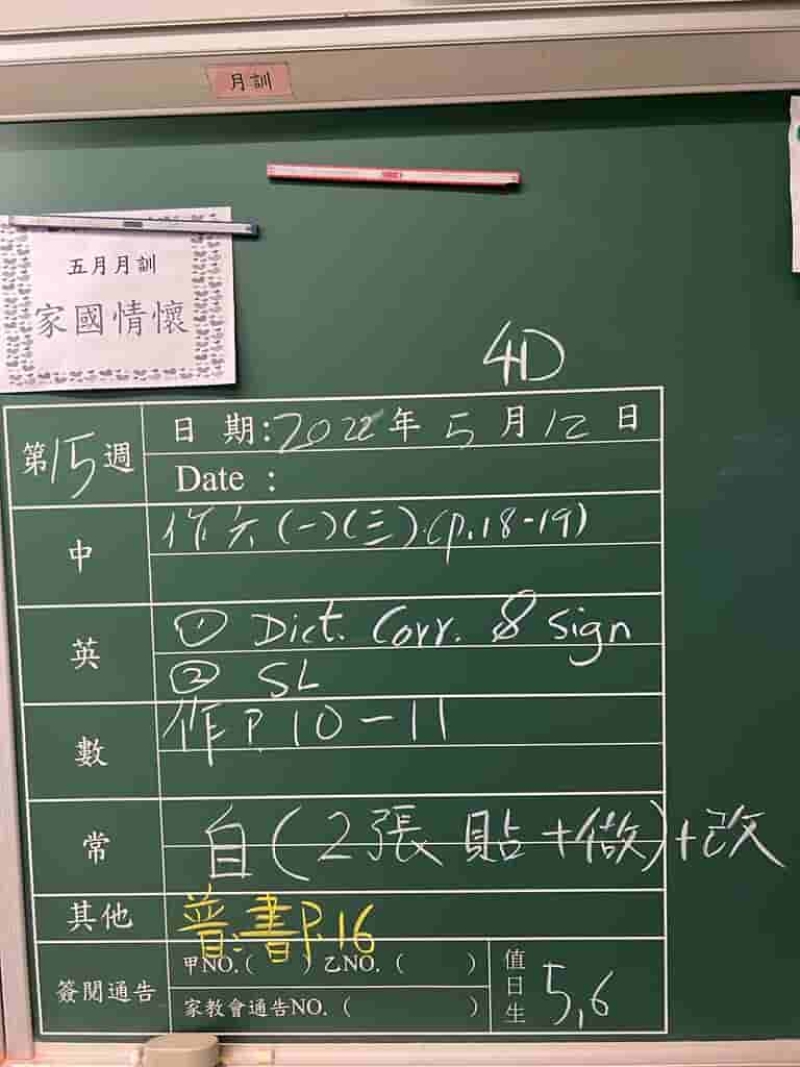 月訓
五月月訓
家國情懷
4D
第15週
日期:2022年5月12日
Date :
中
作六(一)(三).(p.18-19)
英
① Dict. Corr. & Sign
② SL
數
作P.10-11
常
自(2張貼+做)+改
其他
普:書P.16
簽閱通告
甲NO.( ) 乙NO. ( )
家教會通告NO. ( )
值日生
5,6